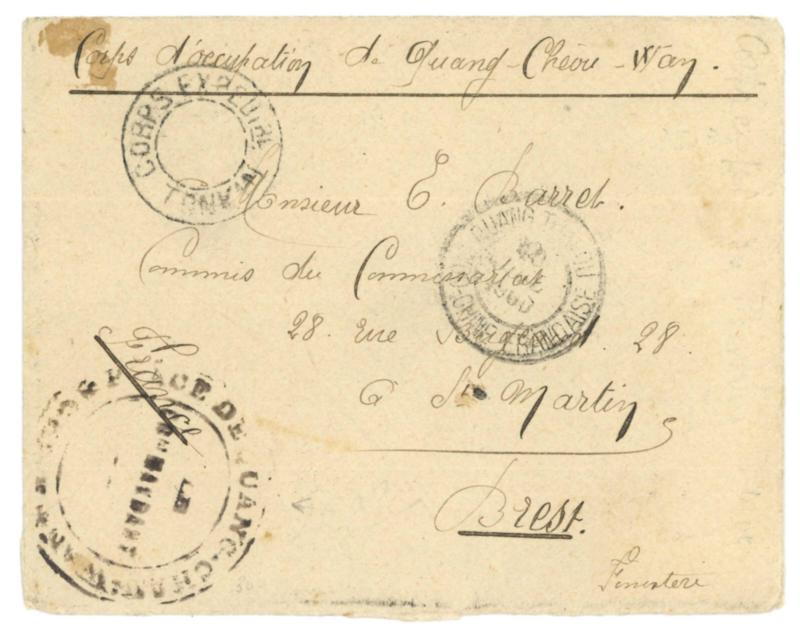 Corps d'occupation de Quang-Chéou-Wan.
CORPS EXPEDIRE
TONKIN
Monsieur E. Barret.
Commis du Commissariat
QUANG TCHEOU
CHINE FRANÇAISE
28. rue 28.
France
à St Martin
PLACE DE QUANG-TCHAU-WAN
LE
COMMANDANT
Brest.
Finistère